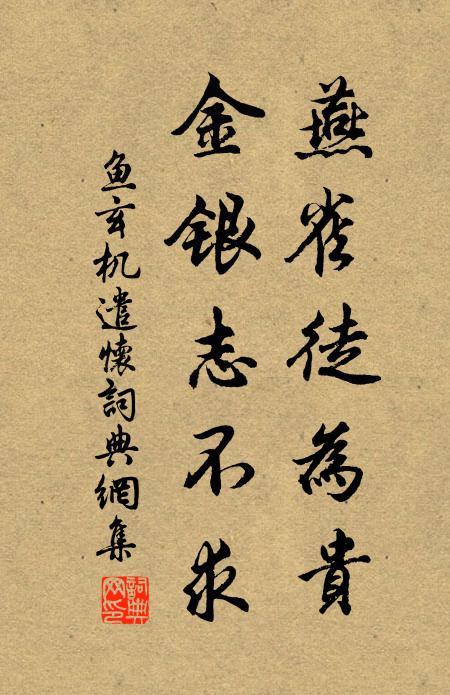 燕雀徒為貴
金銀志不求
鱼玄机遣懷詞典網集
詞典網印